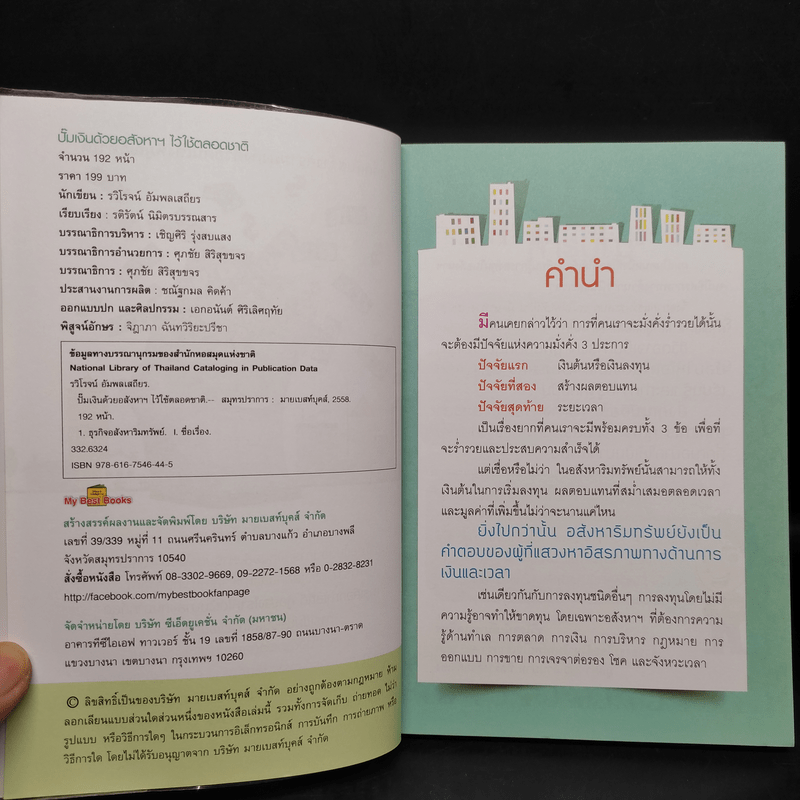 ปั๊มเงินด้วยอสังหาฯ ไว้ใช้ตลอดชาติ
จำนวน 192 หน้า
ราคา 199 บาท
นักเขียน : รวิโรจน์ อัมพลเสถียร
เรียบเรียง : รติรัตน์ นิมิตรบรรณสาร
บรรณาธิการบริหาร : เชิญศิริ รุ่งสบแสง
บรรณาธิการอำนวยการ : ศุภชัย สิริสุขขจร
บรรณาธิการ : ศุภชัย สิริสุขขจร
ประสานงานการผลิต : ชณัฐกมล คิดค้า
ออกแบบปก และศิลปกรรม : เอกอนันต์ ศิริเลิศฤทัย
พิสูจน์อักษร : จิฎาภา ฉันทวิริยะปรีชา
ข้อมูลทางบรรณานุกรมของสำนักหอสมุดแห่งชาติ
National Library of Thailand Cataloging in Publication Data
รวิโรจน์ อัมพลเสถียร.
ปั๊มเงินด้วยอสังหาฯ ไว้ใช้ตลอดชาติ.-- สมุทรปราการ : มายเบสท์บุคส์, 2558.
192 หน้า.
1. ธุรกิจอสังหาริมทรัพย์. I. ชื่อเรื่อง.
332.6324
ISBN 978-616-7546-44-5
My Best Books
สร้างสรรค์ผลงานและจัดพิมพ์โดย บริษัท มายเบสท์บุคส์ จำกัด
เลขที่ 39/339 หมู่ที่ 11 ถนนศรีนครินทร์ ตำบลบางแก้ว อำเภอบางพลี
จังหวัดสมุทรปราการ 10540
สั่งซื้อหนังสือ โทรศัพท์ 08-3302-9669, 09-2272-1568 หรือ 0-2832-8231
http://facebook.com/mybestbookfanpage
จัดจำหน่ายโดย บริษัท ซีเอ็ดยูเคชั่น จำกัด (มหาชน)
อาคารทีซีไอเอฟ ทาวเวอร์ ชั้น 19 เลขที่ 1858/87-90 ถนนบางนา-ตราด
แขวงบางนา เขตบางนา กรุงเทพฯ 10260
© ลิขสิทธิ์เป็นของบริษัท มายเบสท์บุคส์ จำกัด อย่างถูกต้องตามกฎหมาย ห้าม
ลอกเลียนแบบส่วนใดส่วนหนึ่งของหนังสือเล่มนี้ รวมทั้งการจัดเก็บ ถ่ายทอด ไม่ว่า
รูปแบบ หรือวิธีการใดๆ ในกระบวนการอิเล็กทรอนิกส์ การบันทึก การถ่ายภาพ หรือ
วิธีการใด โดยไม่ได้รับอนุญาตจาก บริษัท มายเบสท์บุคส์ จำกัด
คำนำ
มีคนเคยกล่าวไว้ว่า การที่คนเราจะมั่งคั่งร่ำรวยได้นั้น
จะต้องมีปัจจัยแห่งความมั่งคั่ง 3 ประการ
ปัจจัยแรก เงินต้นหรือเงินลงทุน
ปัจจัยที่สอง สร้างผลตอบแทน
ปัจจัยสุดท้าย ระยะเวลา
เป็นเรื่องยากที่คนเราจะมีพร้อมครบทั้ง 3 ข้อ เพื่อที่
จะร่ำรวยและประสบความสำเร็จได้
แต่เชื่อหรือไม่ว่า ในอสังหาริมทรัพย์นั้นสามารถให้ทั้ง
เงินต้นในการเริ่มลงทุน ผลตอบแทนที่สม่ำเสมอตลอดเวลา
และมูลค่าที่เพิ่มขึ้นไม่ว่าจะนานแค่ไหน
ยิ่งไปกว่านั้น อสังหาริมทรัพย์ยังเป็น
คำตอบของผู้ที่แสวงหาอิสรภาพทางด้านการ
เงินและเวลา
เช่นเดียวกันกับการลงทุนชนิดอื่นๆ การลงทุนโดยไม่มี
ความรู้อาจทำให้ขาดทุน โดยเฉพาะอสังหาฯ ที่ต้องการความ
รู้ด้านทำเล การตลาด การเงิน การบริหาร กฎหมาย การ
ออกแบบ การขาย การเจรจาต่อรอง โชค และจังหวะเวลา